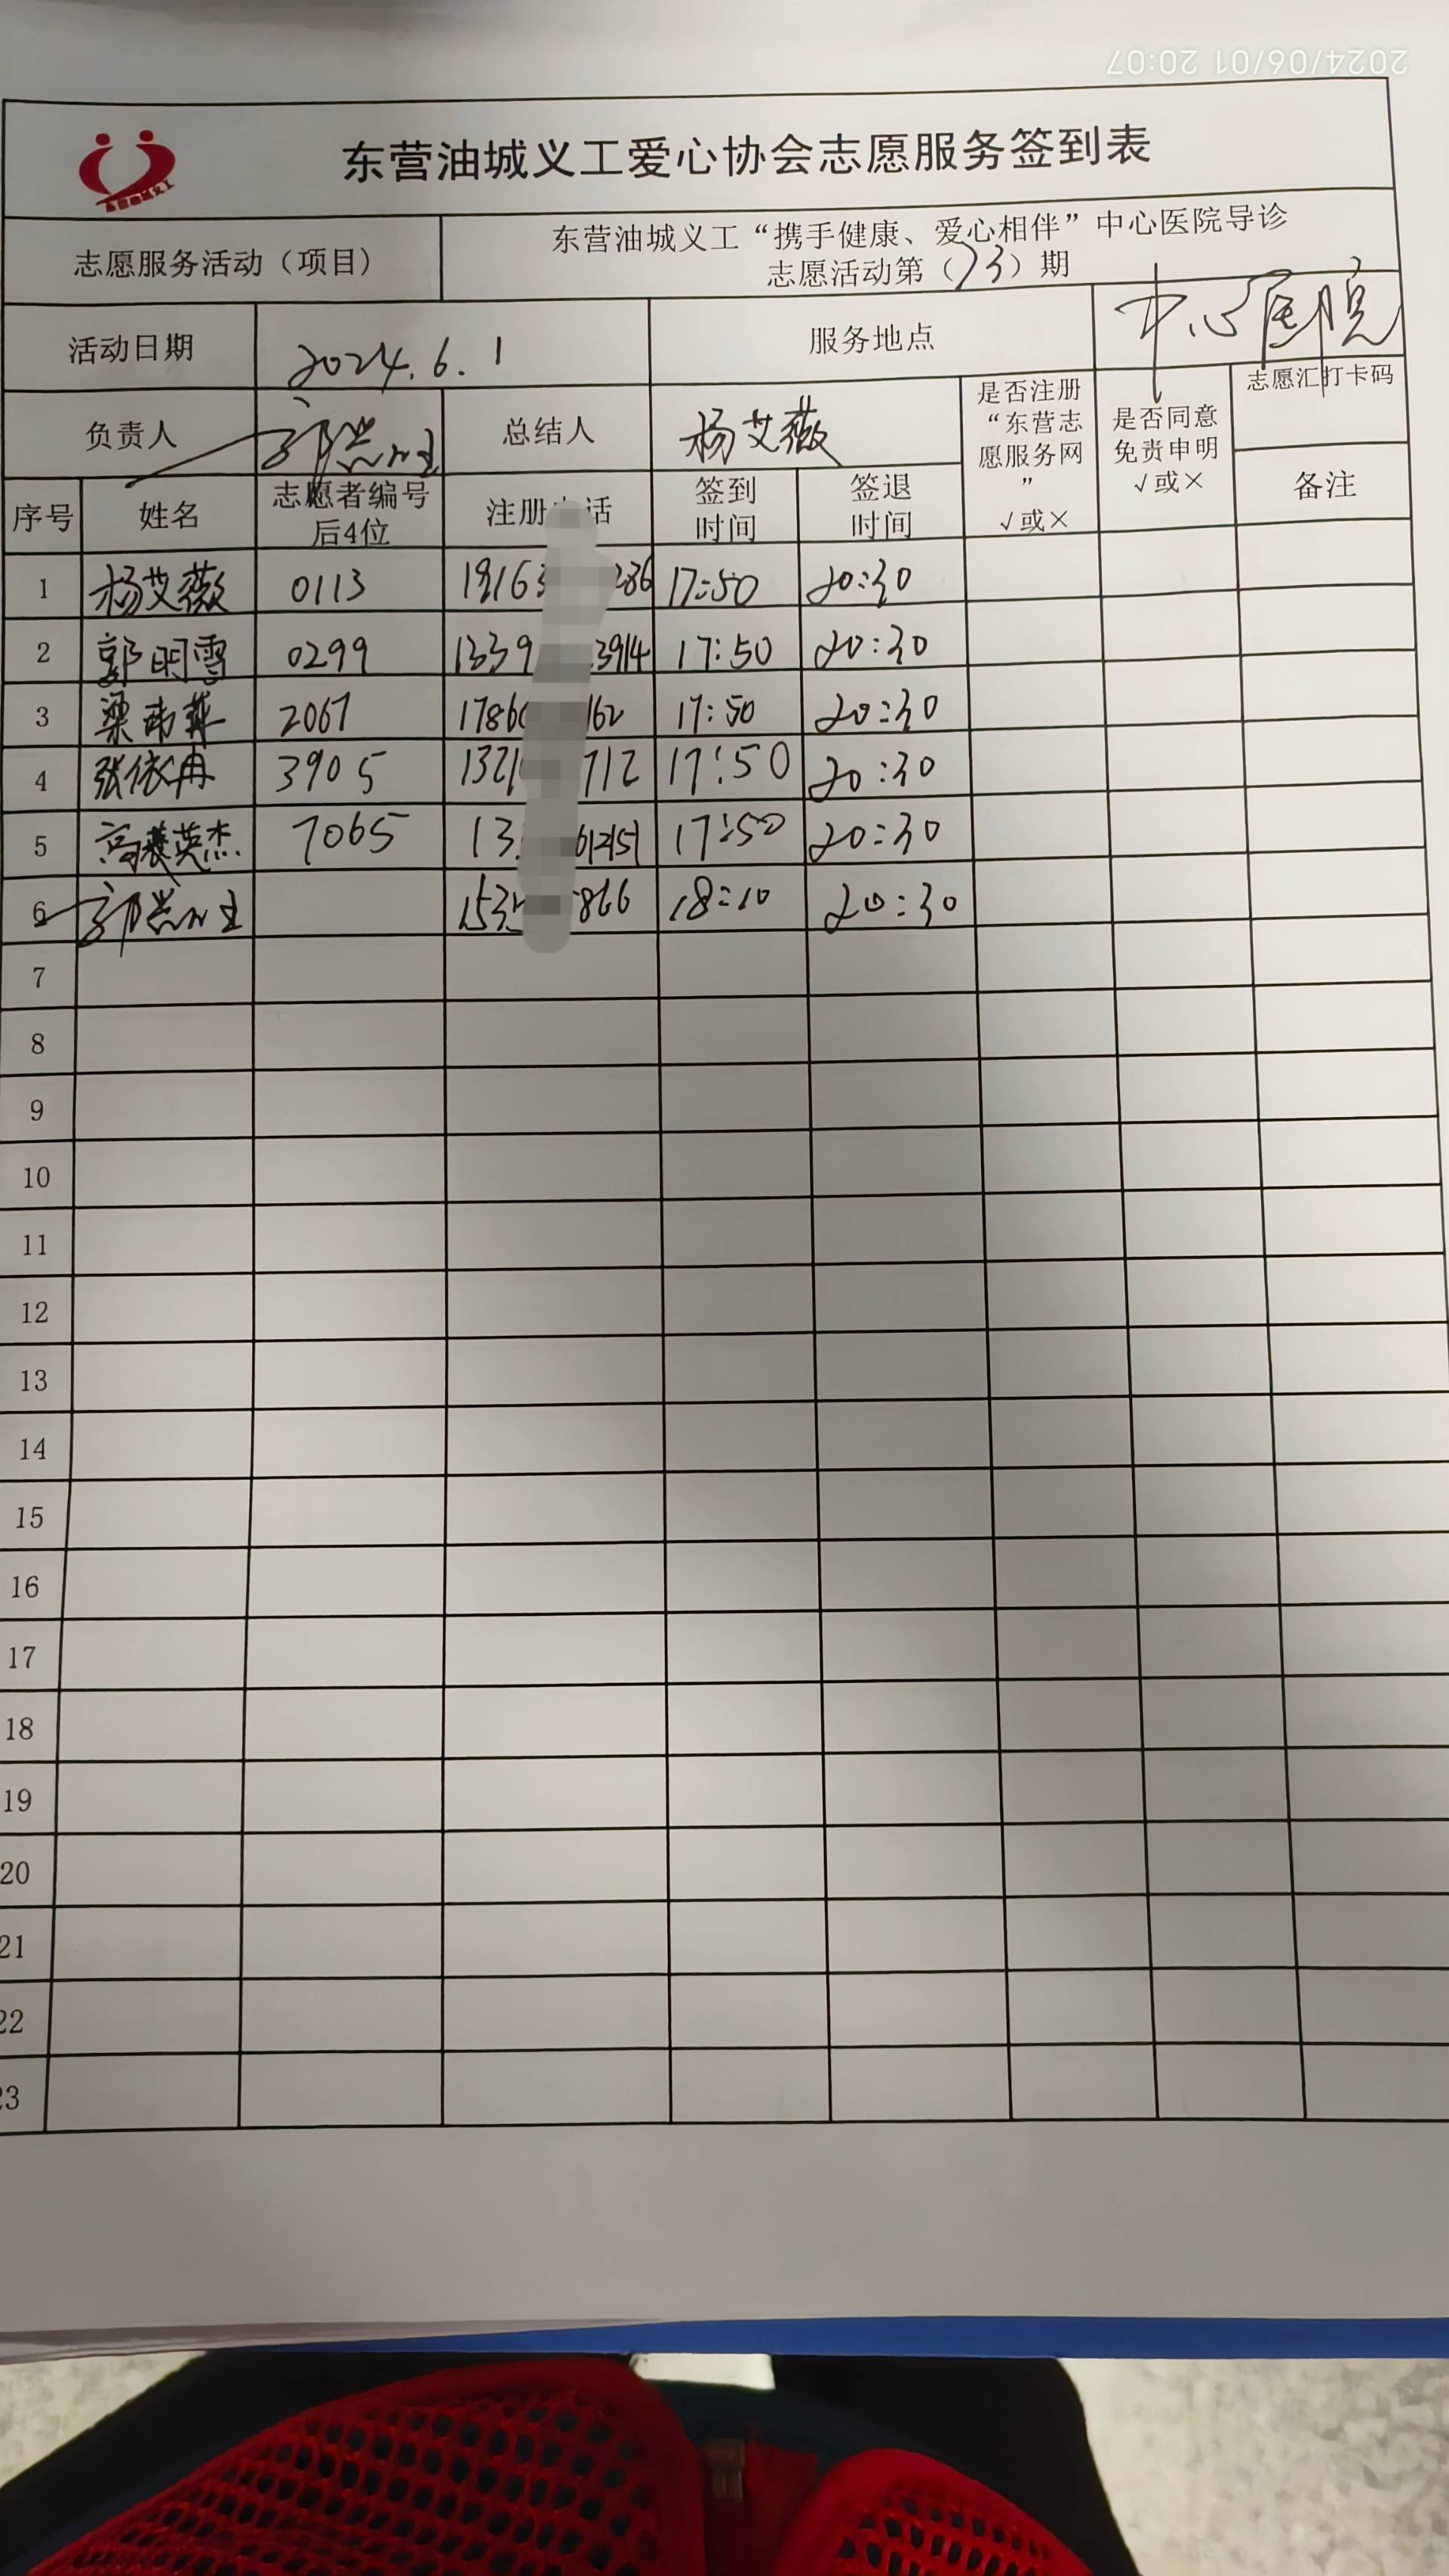 2024/06/01 20:07
东营油城义工爱心协会志愿服务签到表
志愿服务活动（项目） 东营油城义工“携手健康、爱心相伴”中心医院导诊
志愿活动第（73）期
活动日期 2024.6.1 服务地点 中心医院
负责人 总结人 杨艾薇 是否注册“东营志愿服务网” √或× 是否同意免责申明 √或× 志愿汇打卡码
序号 姓名 志愿者编号后4位 注册 话 签到时间 签退时间 备注
1 杨艾薇 0113 19163 286 17:50 20:30
2 郭明雪 0299 1339 3914 17:50 20:30
3 梁 2067 1786 162 17:50 20:30
4 张依冉 3905 132 712 17:50 20:30
5 高 英杰 7065 13 17:50 20:30
6 153 866 18:10 20:30
7
8
9
10
11
12
13
14
15
16
17
18
19
20
21
22
23